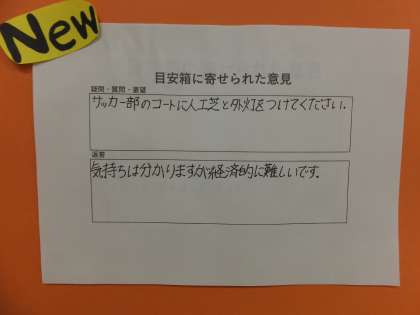 New
目安箱に寄せられた意見
疑問・質問・要望
サッカー部のコートに人工芝と外灯をつけてください.
返答
気持ちは分かりますが経済的に難しいです.